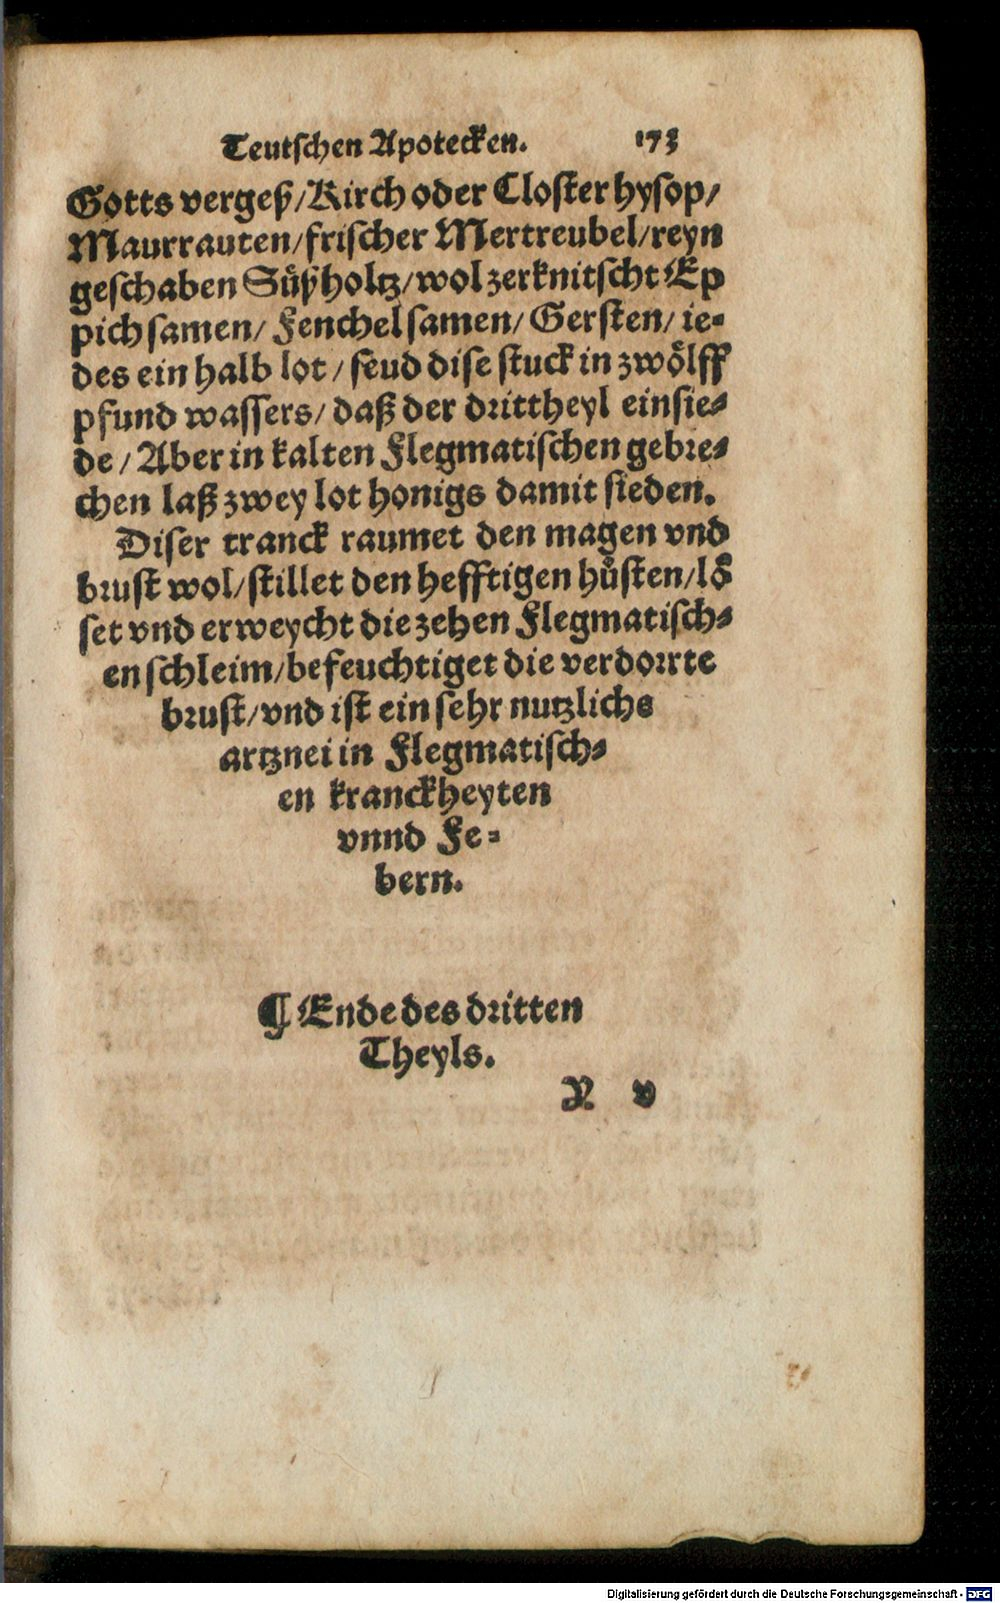 Teutschen Apotecken. 173
Gotts vergeß/Kirch oder Closter hysop/
Maurrauten/frischer Mertreubel/reyn
geschaben Süͤßholtz/wol zerknitscht Ep
pich samen/ Fenchel samen/ Gersten/ ie⸗
des ein halb lot/ seud dise stuck in zwoͤlff
pfund wassers/ daß der drittheyl einsie⸗
de/ Aber in kalten Flegmatischen gebre⸗
chen laß zwey lot honigs damit sieden.
Diser tranck raumet den magen vnd
brust wol/stillet den hefftigen huͤsten/loͤ
set vnd erweycht die zehen Flegmatisch⸗
en schleim/befeuchtiget die verdorrte
brust/vnd ist ein sehr nutzlichs
artznei in Flegmatisch⸗
en kranckheyten
vnnd Fe⸗
bern.
¶ Ende des dritten
Theyls.
Y v
Digitalisierung gefördert durch die Deutsche Forschungsgemeinschaft - DFG